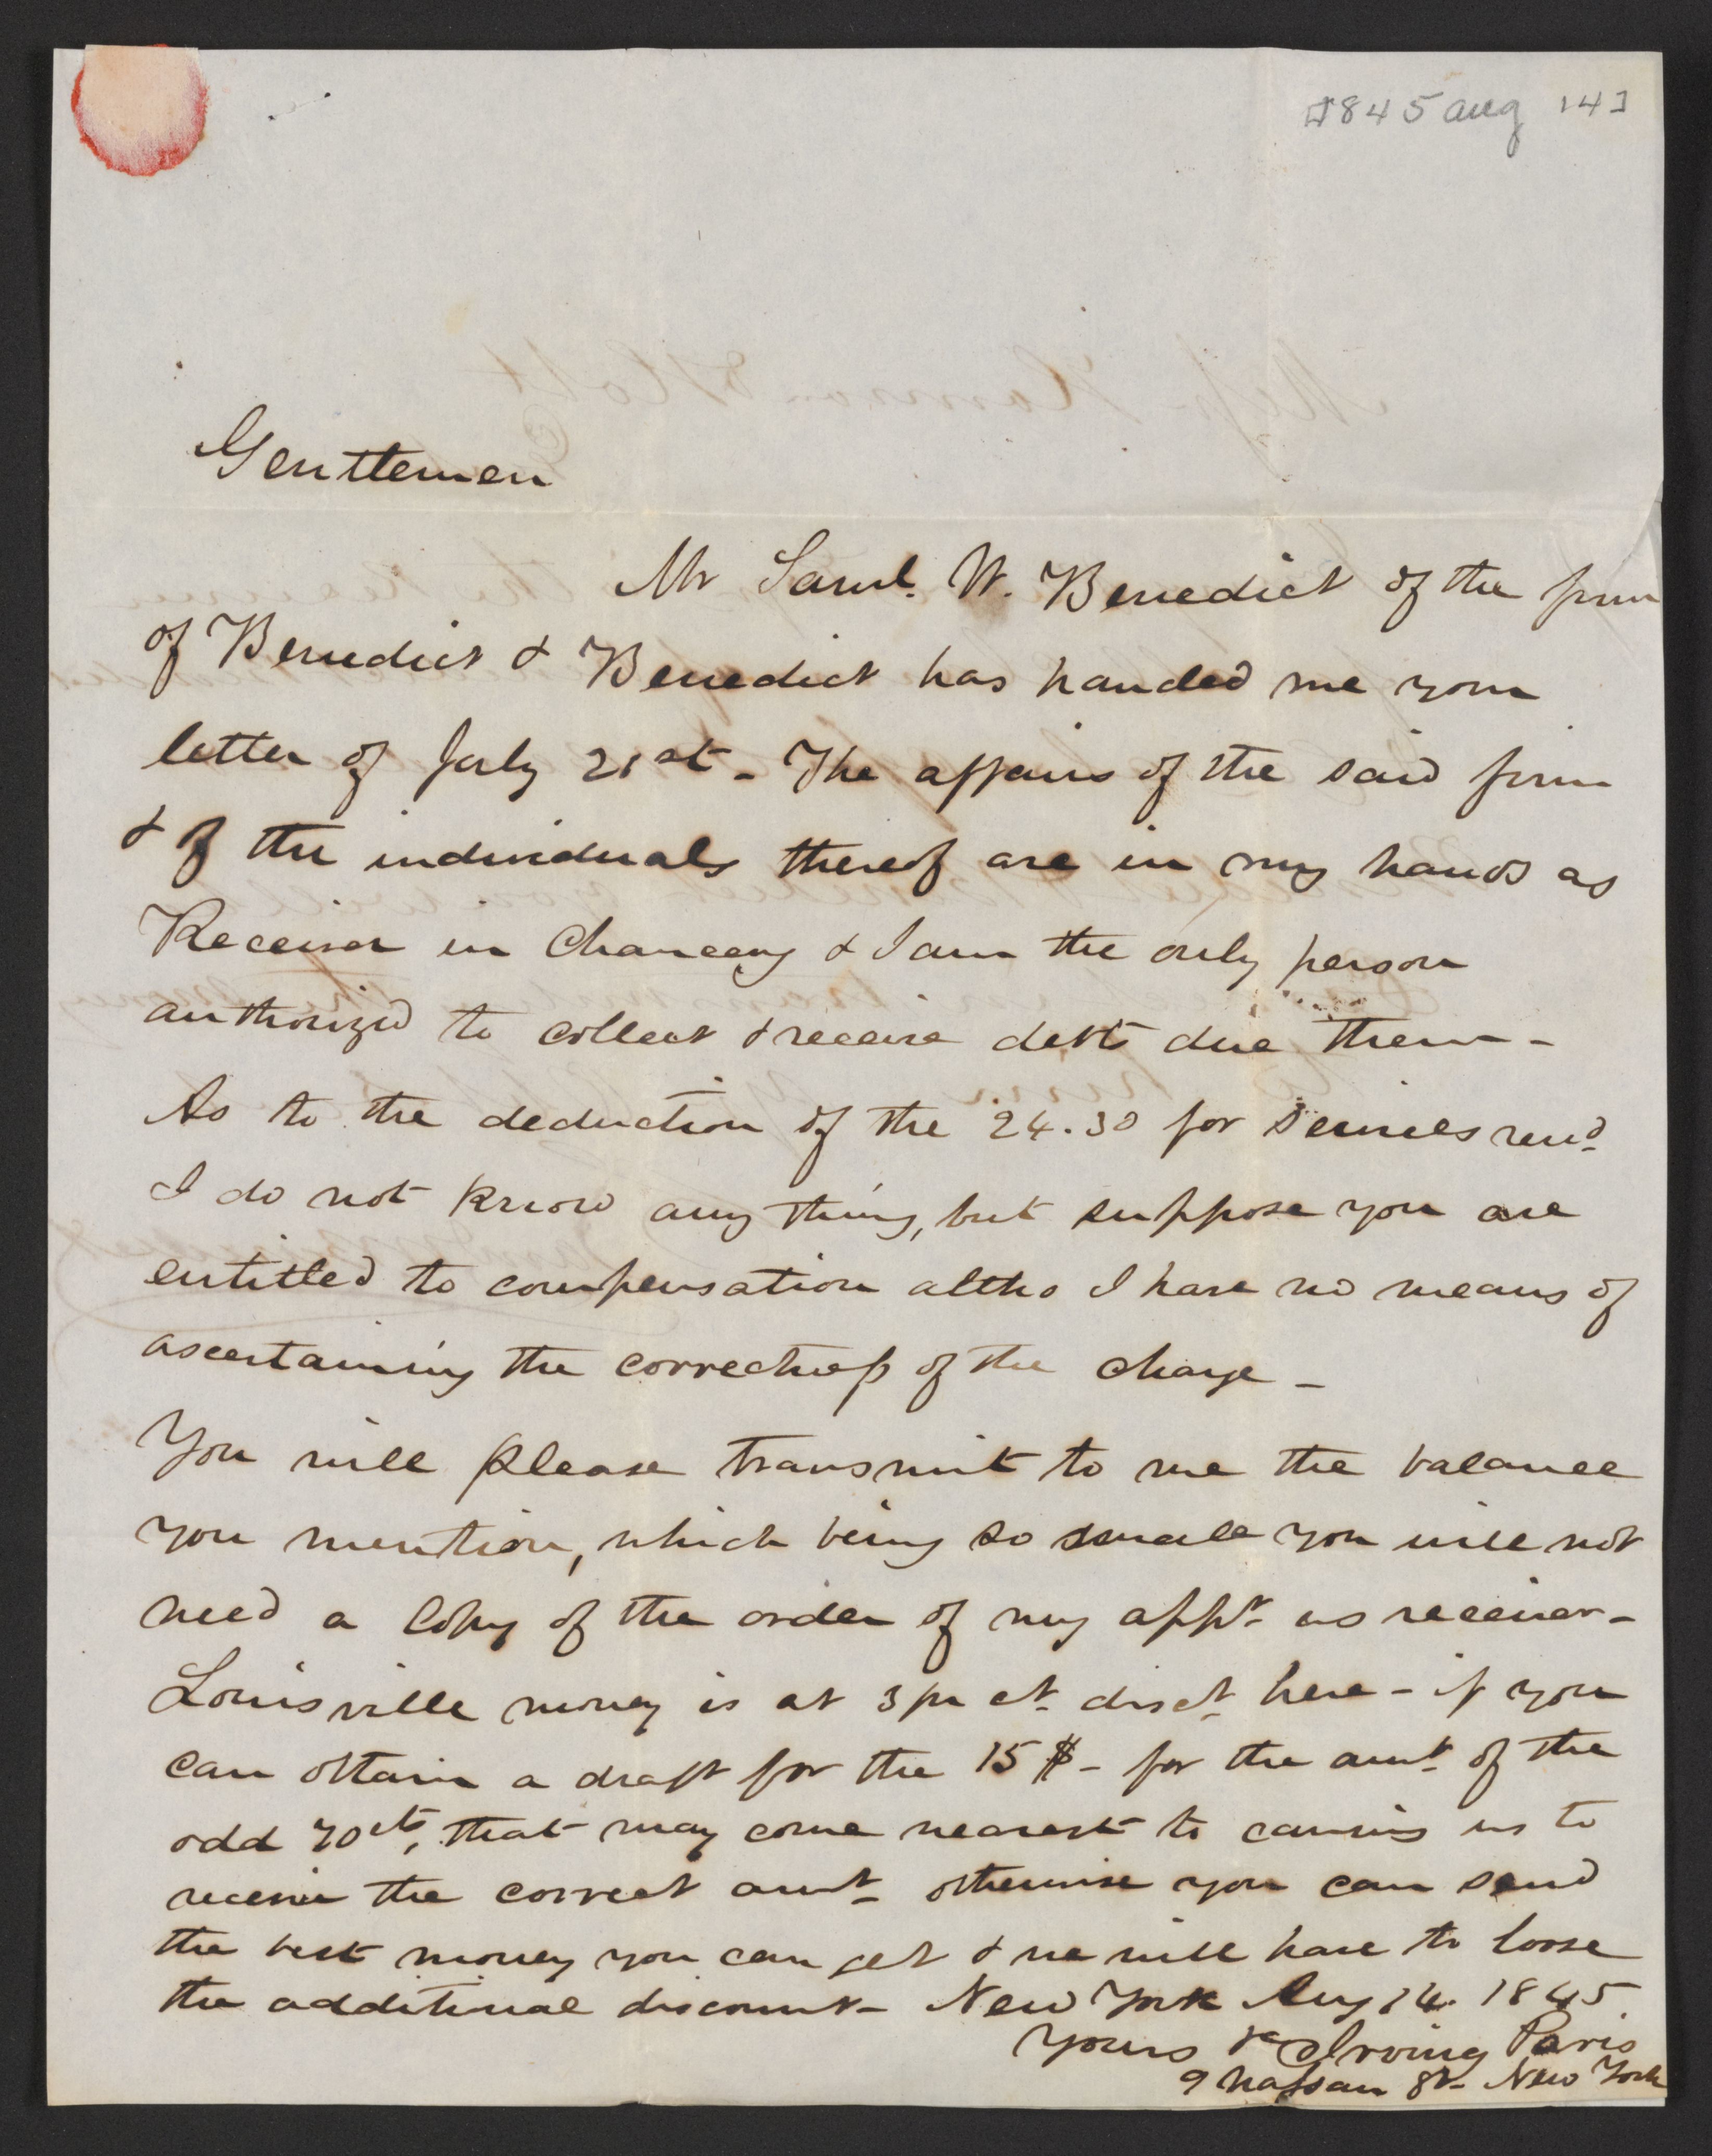 [1845 aug 14]
Gentlemen
Mr Saml. W. Benedict of the firm
of Benedict & Benedict has handed me your
letter of July 21st - The affairs of the said firm
& of the individuals thereof are in my hands as
Receiver in Chancery & I am the only person
authorized to collect & receive debts due them -
As to the deduction of the 24.30 for services rend
I do not know any thing, but suppose you are
entitled to compensation altho I have no means of
ascertaining the correctness of the charge -
You will please transmit to me the balance
you mention, which being so small you will not
need a Copy of the order of my appt. as receiver -
Louisville money is at 3 pr ct. disct. here - if you
can obtain a draft for the 15 $ - for the amt. of the
odd 70cts, that may come nearest to causing us to
receive the correct amt. otherwise you can send
the best money you can get & we will have to loose
the additional discount - New York Aug 14. 1845.
Yours &c Irving Paris
9 Nassau St - New York